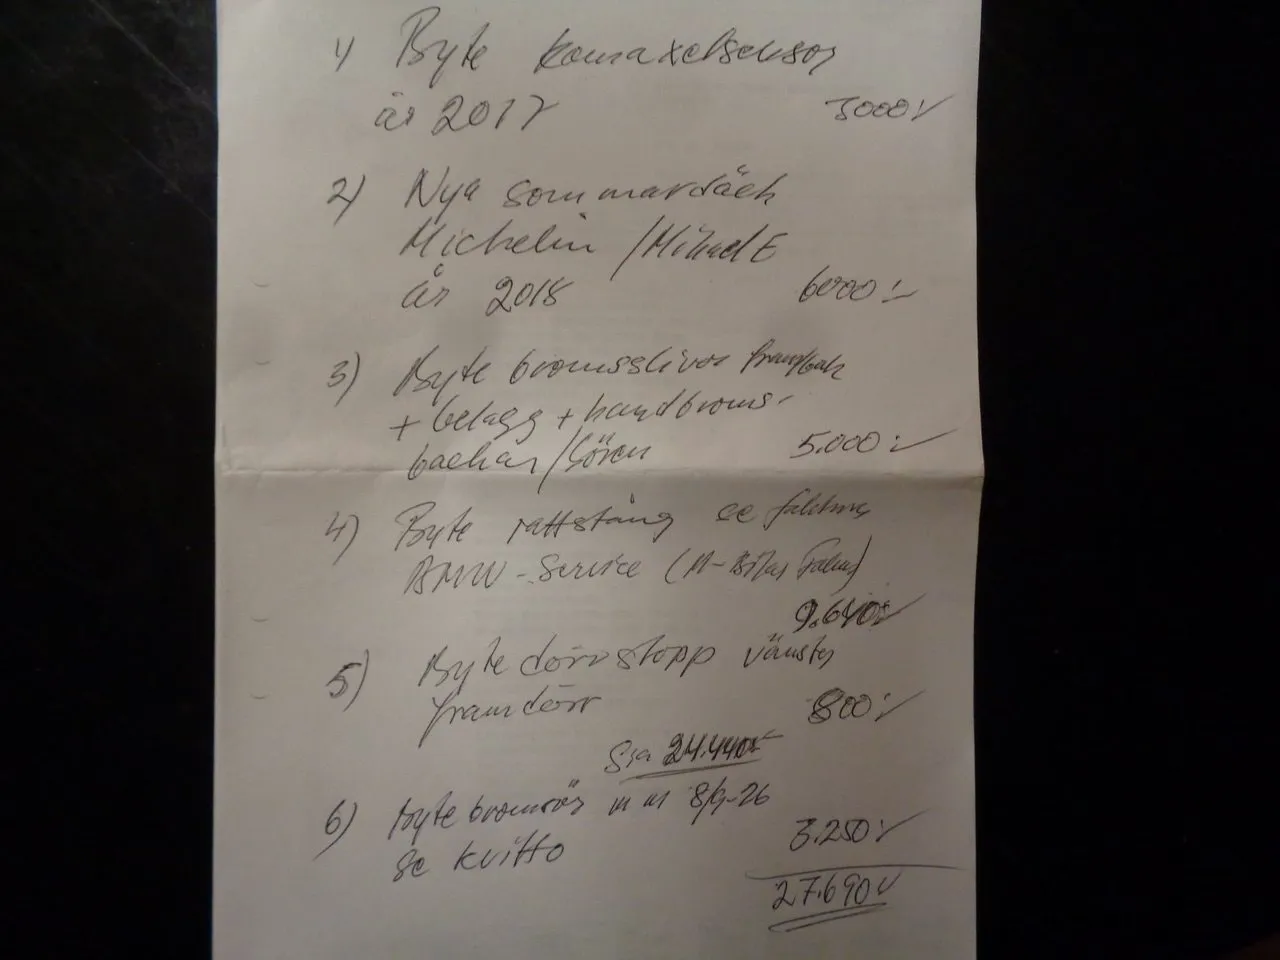 1) Byte kamaxelsensor
år 2017 3000:-
2) Nya sommardäck
Michelin / Mikael E
år 2018 6000:-
3) Byte bromsskivor fram/bak
+ belägg + handbroms-
backar / Sören 5.000:-
4) Byte rattstång se faktura
BMW-Service (M-Bilar Falun)
9.640:-
5) Byte dörrstopp vänster
framdörr 800:-
S:a 24.440:-
6) Byte bromsrör m m 8/9-26
se kvitto 3.250:-
27.690:-